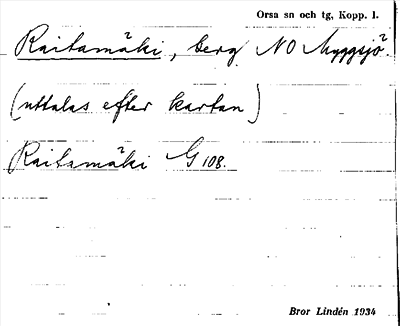 Orsa sn och tg, Kopp. l.
Raitamäki, berg NO Myggsjö.
(uttalas efter kartan)
Raitamäki G 108.
Bror Lindén 1934